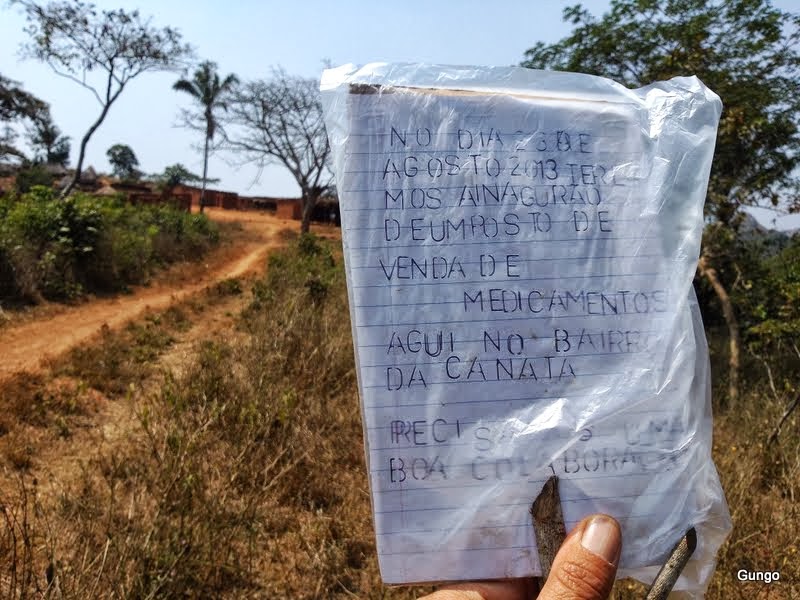 NO DIA 23 DE
AGOSTO 2013 TERE
MOS AINAGURAO
DEUMPOSTO DE
VENDA DE
MEDICAMENTOS
AGUI NO BAIRRO
DA CANATA
PRECISAMOS UMA
BOA COLABORACAO
Gungo